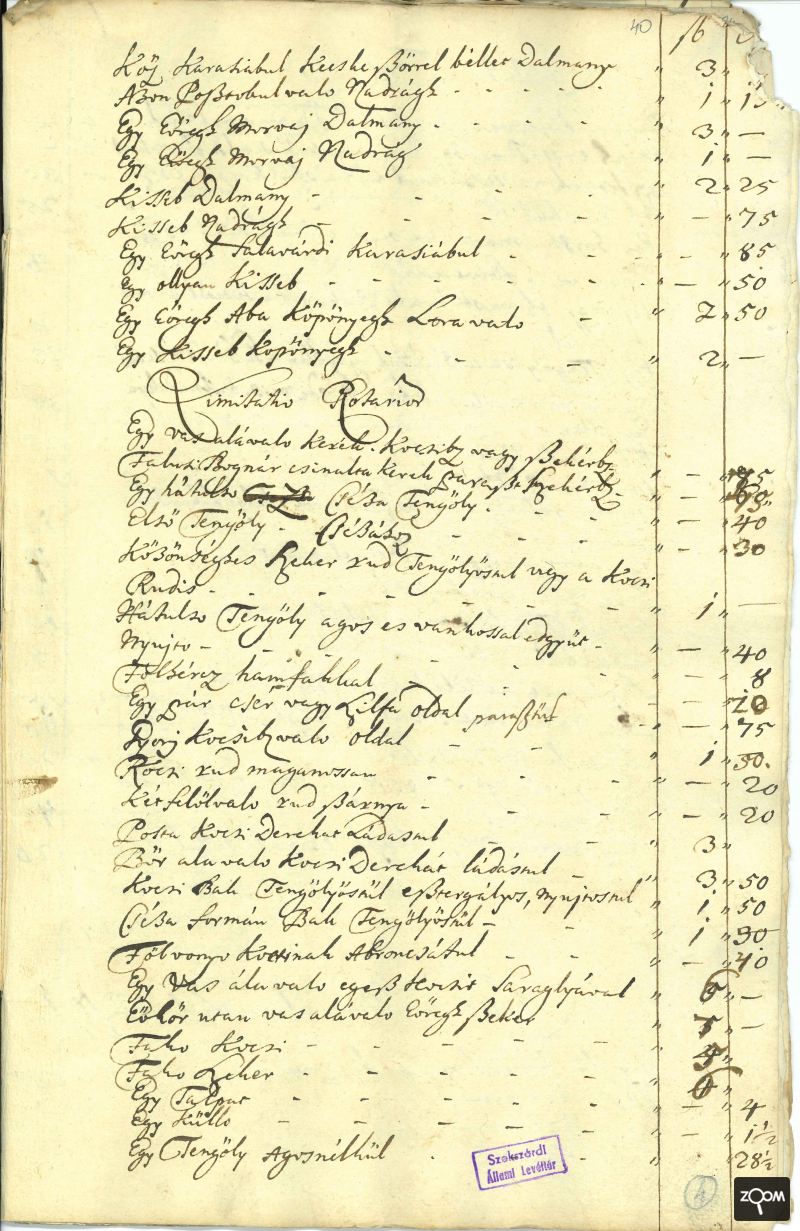 40
fl
Köz Karasiábul Kecske ßőrrel béllet Dalmany " 3 "
Azon Poßtobul valo Nadrágh - - - - " 1 "
Egy Eöregh Morvaj Dalmany - - - - " 3 " —
Egy Eöregh Morvaj Nadrág " 1 " —
Kisseb Dalmany - - - - " 2 " 25
Kisseb Nadrágh - - - - " — " 75
Egy Eöregh Salavárdi Karasiábul - - - " 85
Egy ollyan Kisseb - - - - " — " 50
Egy Eöregh Aba Köpönyegh Lora valo - " 2 " 50
Egy Kisseb Köpönyegh - - - " 2 " —
Limitatio Rotariorum
Egy vas alávalo Kerék. Kocsihz vagy ßekérhz
Falusi Bognár csinalta kerek paraßt ßekérhz
Egy hátulso Céßa Tengöly - - -
Első Tengöly - Céßához - - - " — " 40
Közönséghes ßeker rud Tengölyöstul vagy a Kocsi " — " 30
Rudis - - - - - - " 1 " —
Hátulso Tengöly agos es vankossal edgyüt -
Nyujto - - - - - " — " 40
Fölhércz hamfakkal - - " 8
Egy pár cser vagy ßilfa oldal paraßtos — " 20
Gyorj Kocsihz valo oldal - - " — " 75
Kocsi rud maganossan - - - " 1 " 50.
Két felölvalo rud ßárnya - - - " — " 20
Posta Kocsi Derekat Ládástul - - " — " 20
Bőr ala valo Kocsi Derekát ládástul - " 3 "
Kocsi Bak Tengölyöstül eßtergályos, nyujtostul " 3 " 50
Céßa formán Bak Tengölyöstül - - " 1 " 50
Föl vonyo Kocsinak Abroncsátul - - " 1 " 30
Egy Vas ála valo egeß Kocsit Saraglyával — " 40
Eökör utan vas alávalo Eöregh ßeker " 6 " —
Fako Kocsi - - - - " 5 " —
Fako ßeker - - - -
Egy Talpat - - - -
Egy Küllő - - - - " — " 4
Egy Tengöly Agosnélkül - - " — " 1½
" 28½
Szekszárdi
Állami Levéltár
ZOOM